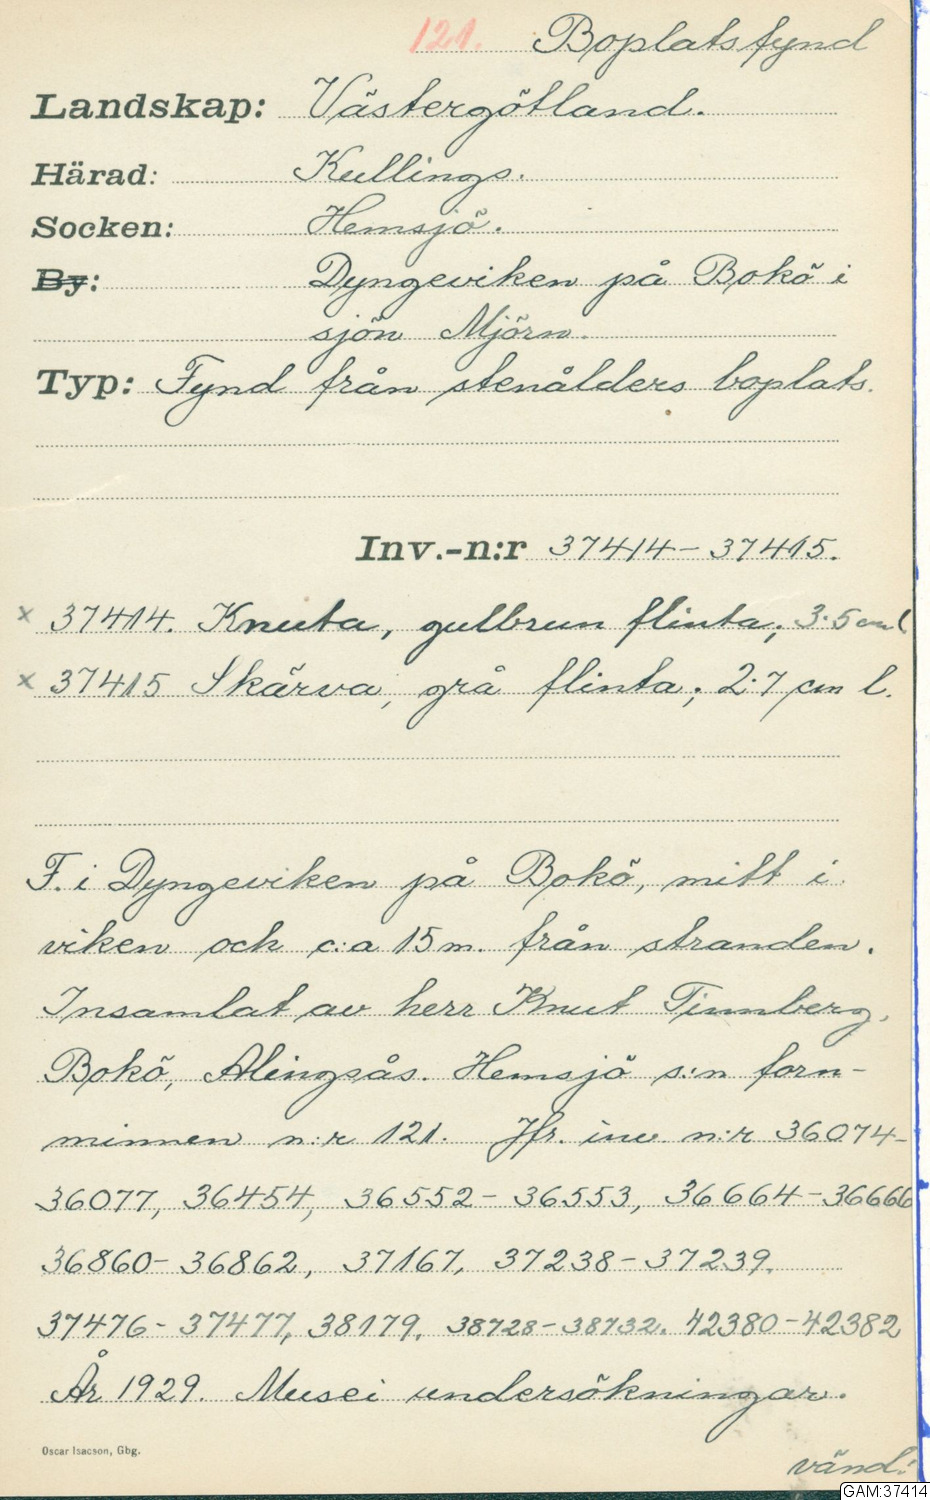 121. Boplatsfynd
Landskap: Västergötland.
Härad: Kullings.
Socken: Hemsjö.
By: Dyngeviken på Bokö i
sjön Mjörn.
Typ: Fynd från stenålders boplats.
Inv.-n:r 37414-37415.
x 37414. Knuta, gulbrun flinta; 3.5 cm l
x 37415 Skärva, grå flinta; 2.7 cm l.
F. i Dyngeviken på Bokö, mitt i
viken och c:a 15 m. från stranden.
Insamlat av herr Knut Tinnberg,
Bokö, Alingsås. Hemsjö s:n forn-
minnen n:r 121. Jfr. inv n:r 36074-
36077, 36454, 36552-36553, 36664-36666
36860-36862, 37167, 37238-37239.
37476-37477, 38179. 38728-38732. 42380-42382
År 1929. Musei undersökningar.
Oscar Isacson, Gbg.
vänd!
GAM:37414